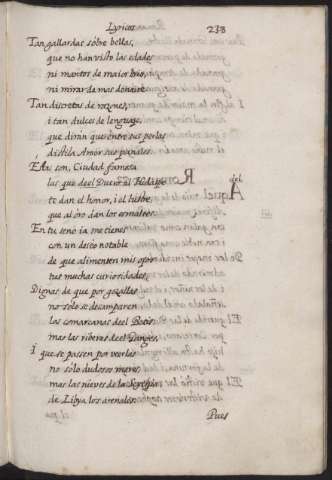 Lyricos 238
Tan gallardas sobre bellas,
que no han visto las edades
ni mantos de maior brio,
ni mirar de mas donaire
Tan discretas de razones,
i tan dulces de lenguaje,
que dirán que entre sus perlas
distila Amor sus panales.
Éstas son, Ciudad famosa
las que del Duero al Hidaspe
te dan el honor, i el lustre,
que al oro dan los esmaltes.
En tu seno ia me tienes
con un deseo notable
de que alimenten mis ojos
tus muchas curiosidades
Dignas de que por gozallas
no sólo se desamparen
las comarcanas del Betis
mas las riberas del Ganges,
I que se passen por verlas
no sólo dudosos mares
mas las nieves de la Scythia
de Libya los arenales.
Pues